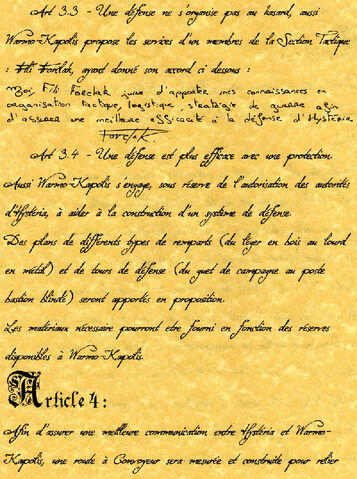 Art 3.3 - Une défense ne s'organise pas au hasard, aussi
Warmo-Kapolis propose les services d'un membres de la Section Tactique
: Fili Forclak, ayant donné son accord ci dessous :
Moi, Fili Forclak jure d'apporter mes connaissances en
organisation tactique, logistique, stratégie de guerre afin
d'assurer une meilleure efficacité à la défense d'Hystéria
Forclak
Art 3.4 - Une défense est plus efficace avec une protection.
Aussi Warmo-Kapolis s'engage, sous réserve de l'autorisation des autorités
d'Hystéria, à aider à la construction d'un système de défense.
Des plans de différents types de remparts (du léger en bois au lourd
en métal) et de tours de défense (du guet de campagne au poste
bastion blindé) seront apportés en proposition.
Les matériaux nécessaire pourront etre fourni en fonction des réserves
disponibles à Warmo-Kapolis.
Article 4 :
Afin d'assurer une meilleure communication entre Hystéria et Warmo-
Kapolis, une route à Convoyeur sera mesurée et construite pour relier